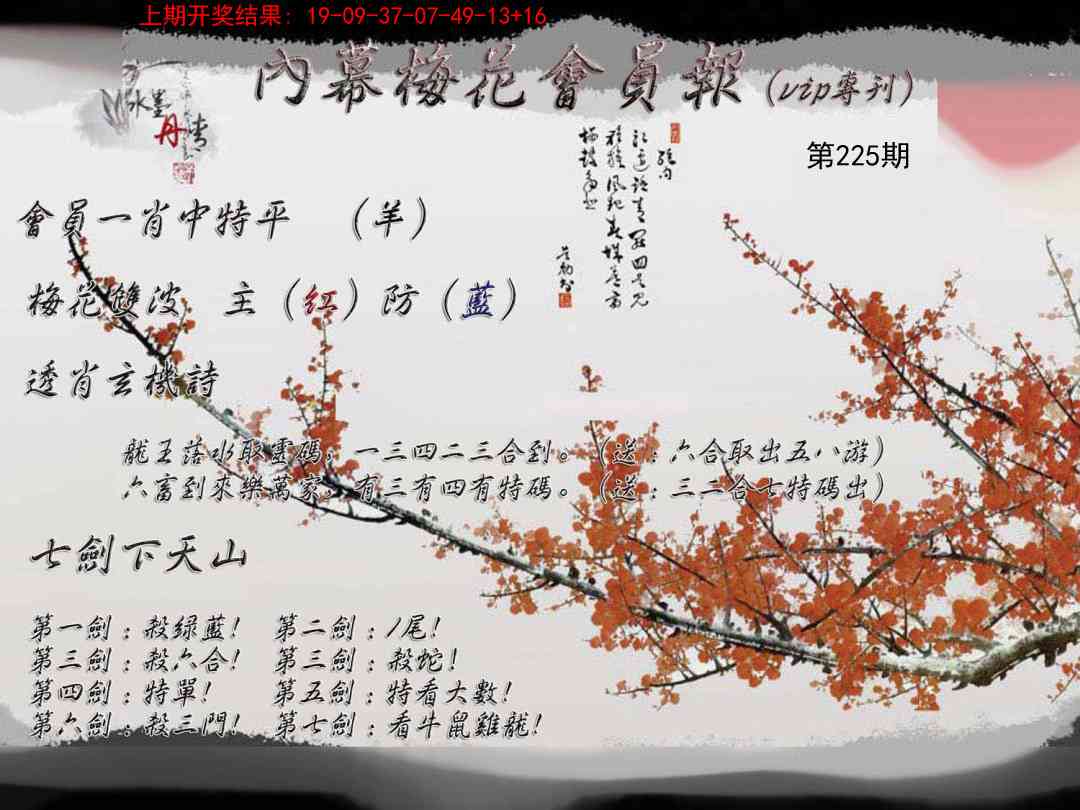 上期开奖结果: 19-09-37-07-49-13+16
內幕梅花會員報(vip專刊)
水墨
丹青
第225期
會員一肖中特平 (羊)
梅花雙波 主(紅)防(藍)
透肖玄機詩
龍王落水取靈碼，一三四二三合到。(送:六合取出五八游)
六畜到來樂萬家，有三有四有特碼。(送:三二合七特碼出)
七劍下天山
第一劍:殺绿藍! 第二劍:1尾!
第三劍:殺六合! 第三劍:殺蛇!
第四劍:特單! 第五劍:特看大數!
第六劍:殺三門! 第七劍:看牛鼠雞龍!